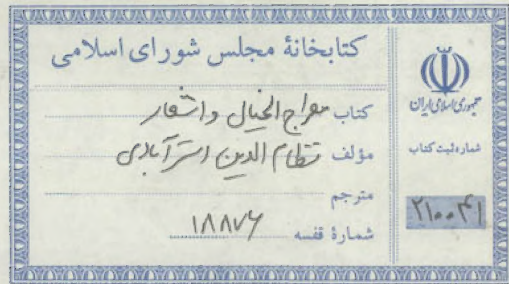 کتابخانهٔ مجلس شورای اسلامی
کتاب معراج الخیال و اشعار
مؤلف نظام الدین استرآبادی
مترجم
شمارهٔ قفسه ۱۸۸۷۶
جمهوری اسلامی ایران
شماره ثبت کتاب
۲۱۰۰۴۱